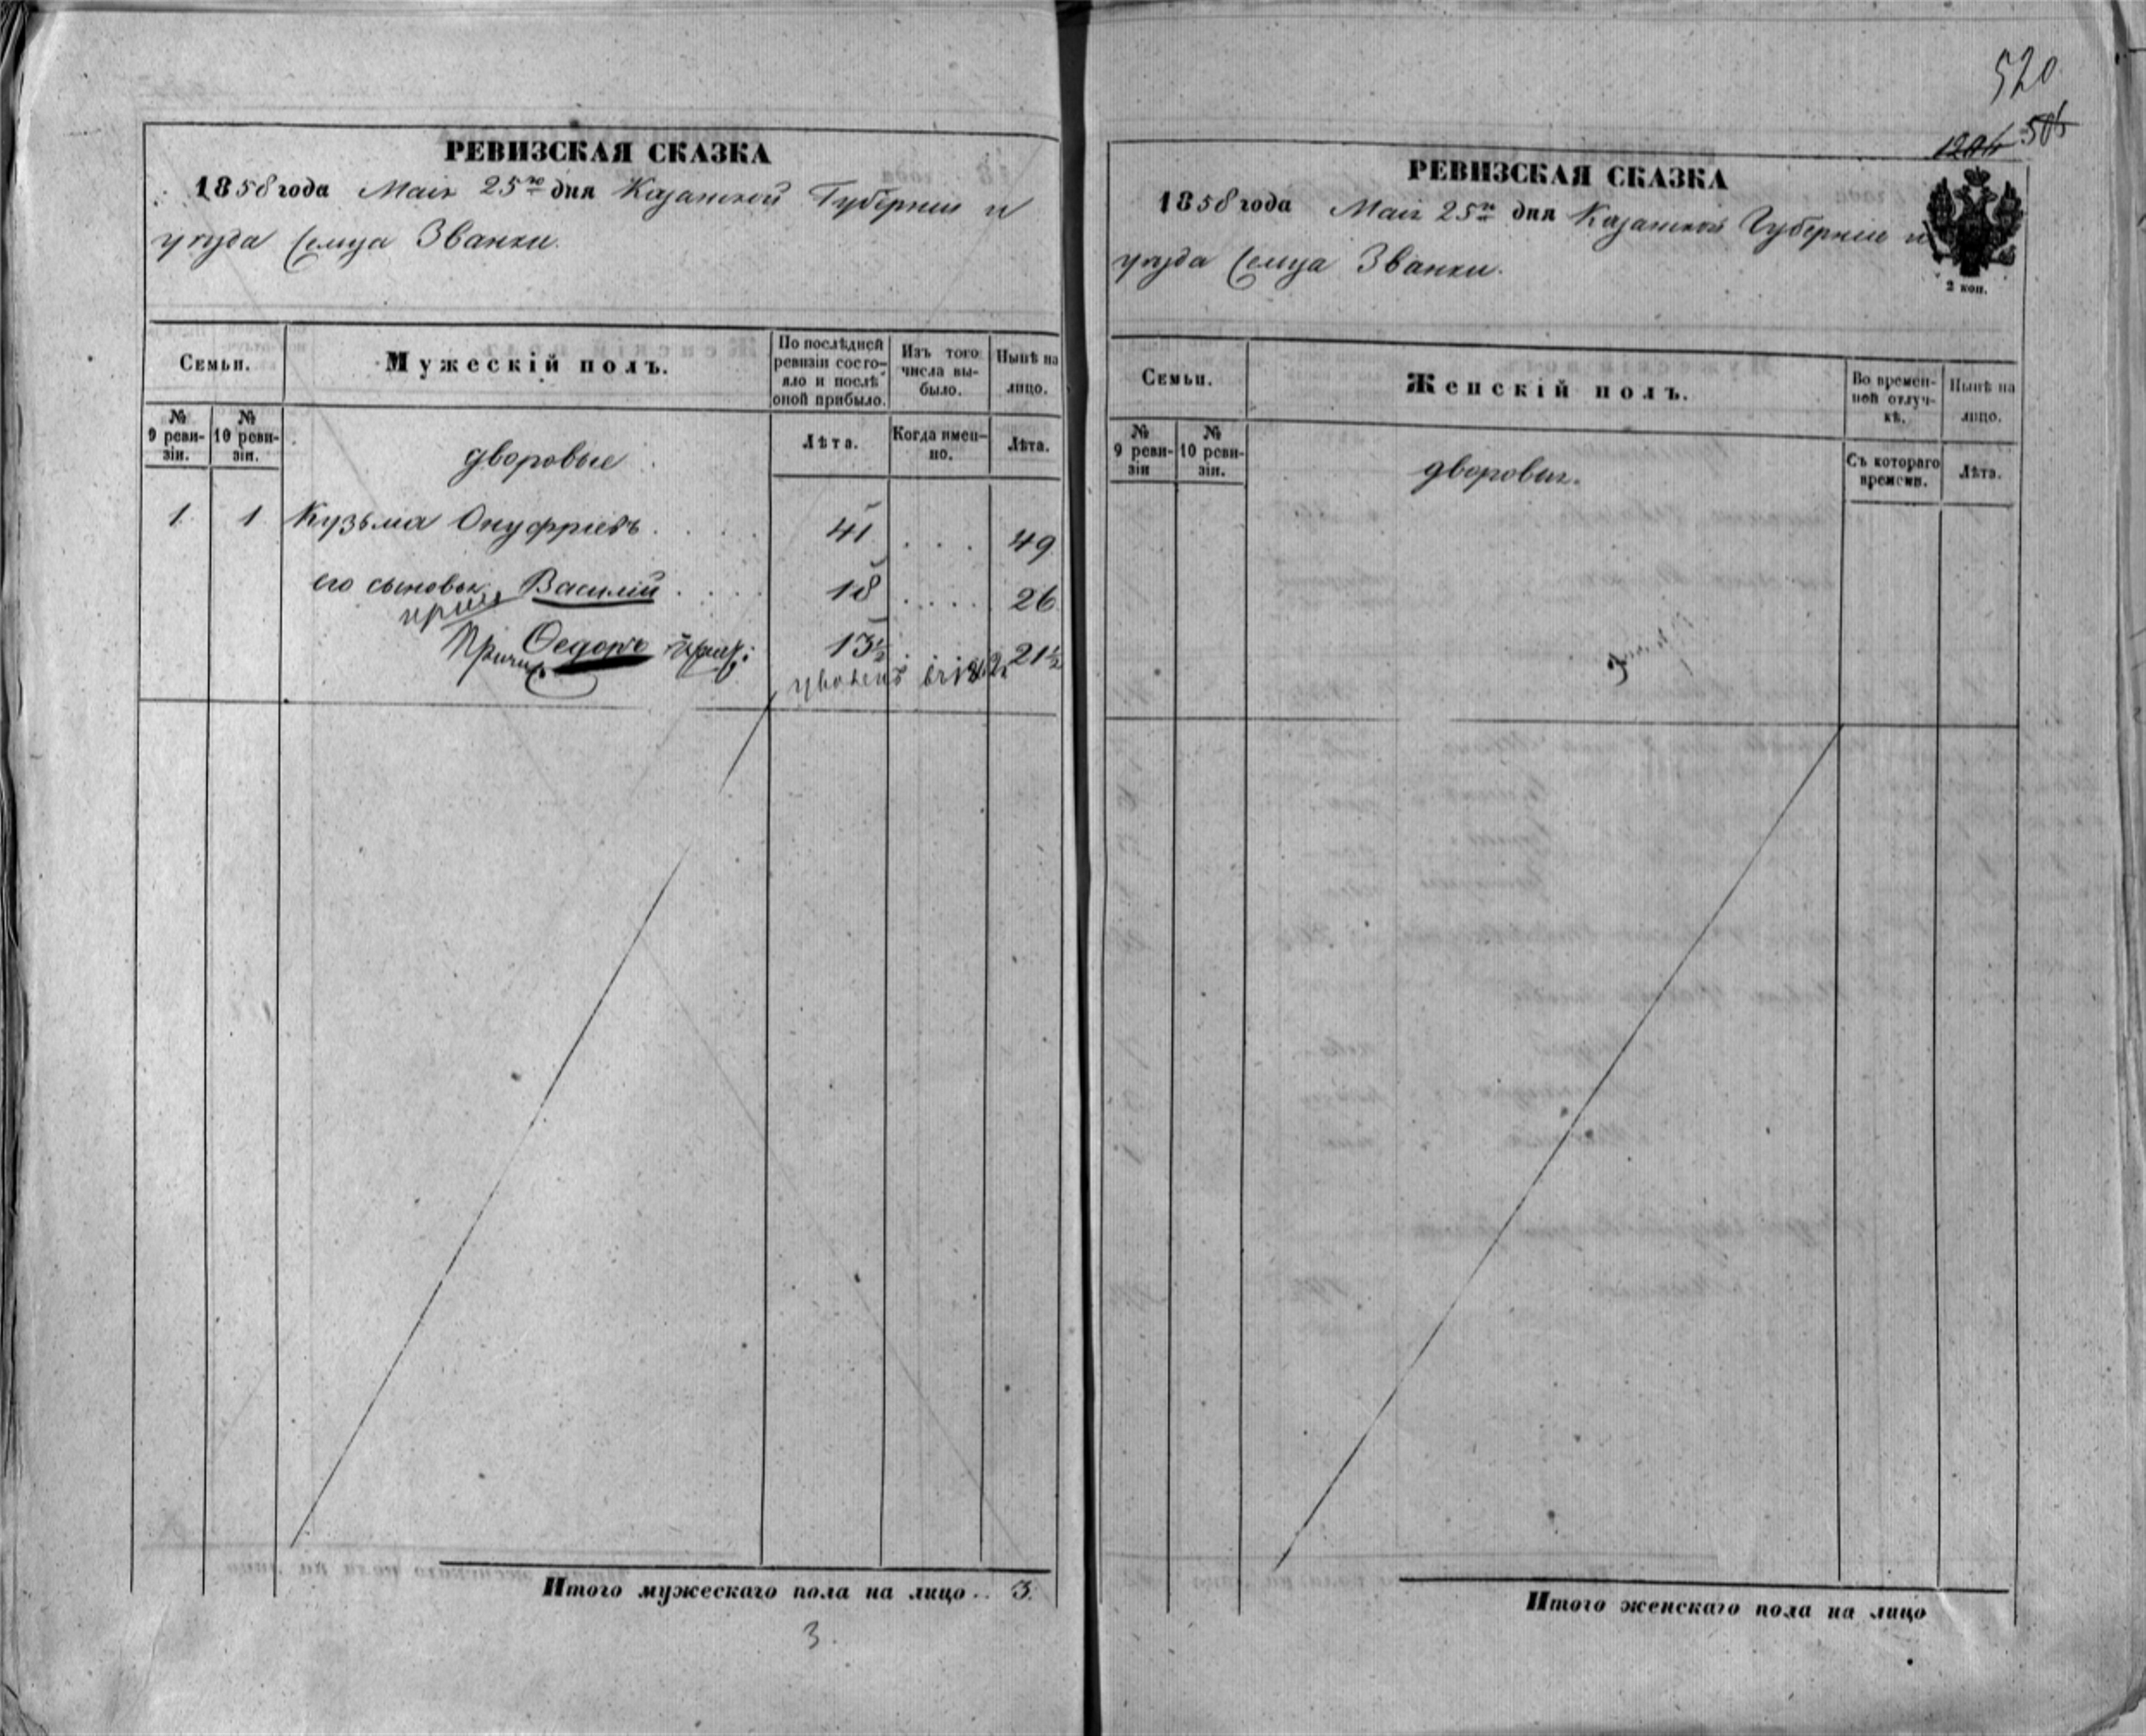 РЕВИЗСКАЯ СКАЗКА
1858 года Мая 25го дня Казанской Губернiи и
уѣзда Сельца Званки.
Семьи.
Мужескiй полъ.
По послѣдней ревизiи состояло и послѣ оной прибыло.
Изъ того числа выбыло.
Нынѣ на лицо.
№ 9 ревизiи.
№ 10 ревизiи.
дворовые
Лѣта.
Когда именно.
Лѣта.
1. 1 Кузьма Онуфрiевъ . . . . 41 . . . 49
его сыновья Василiй . . . . 18 . . . . 26
Ѳедоръ 13½ 21½
Итого мужескаго пола на лицо .. 3.
3.
520
1204 506
РЕВИЗСКАЯ СКАЗКА
1858 года Мая 25го дня Казанской Губернiи и
уѣзда Сельца Званки.
2 коп.
Семьи.
Женскiй полъ.
Во временной отлучкѣ.
Нынѣ на лицо.
№ 9 ревизiи
№ 10 ревизiи.
дворовыя.
Съ котораго времени.
Лѣта.
Итого женскаго пола на лицо